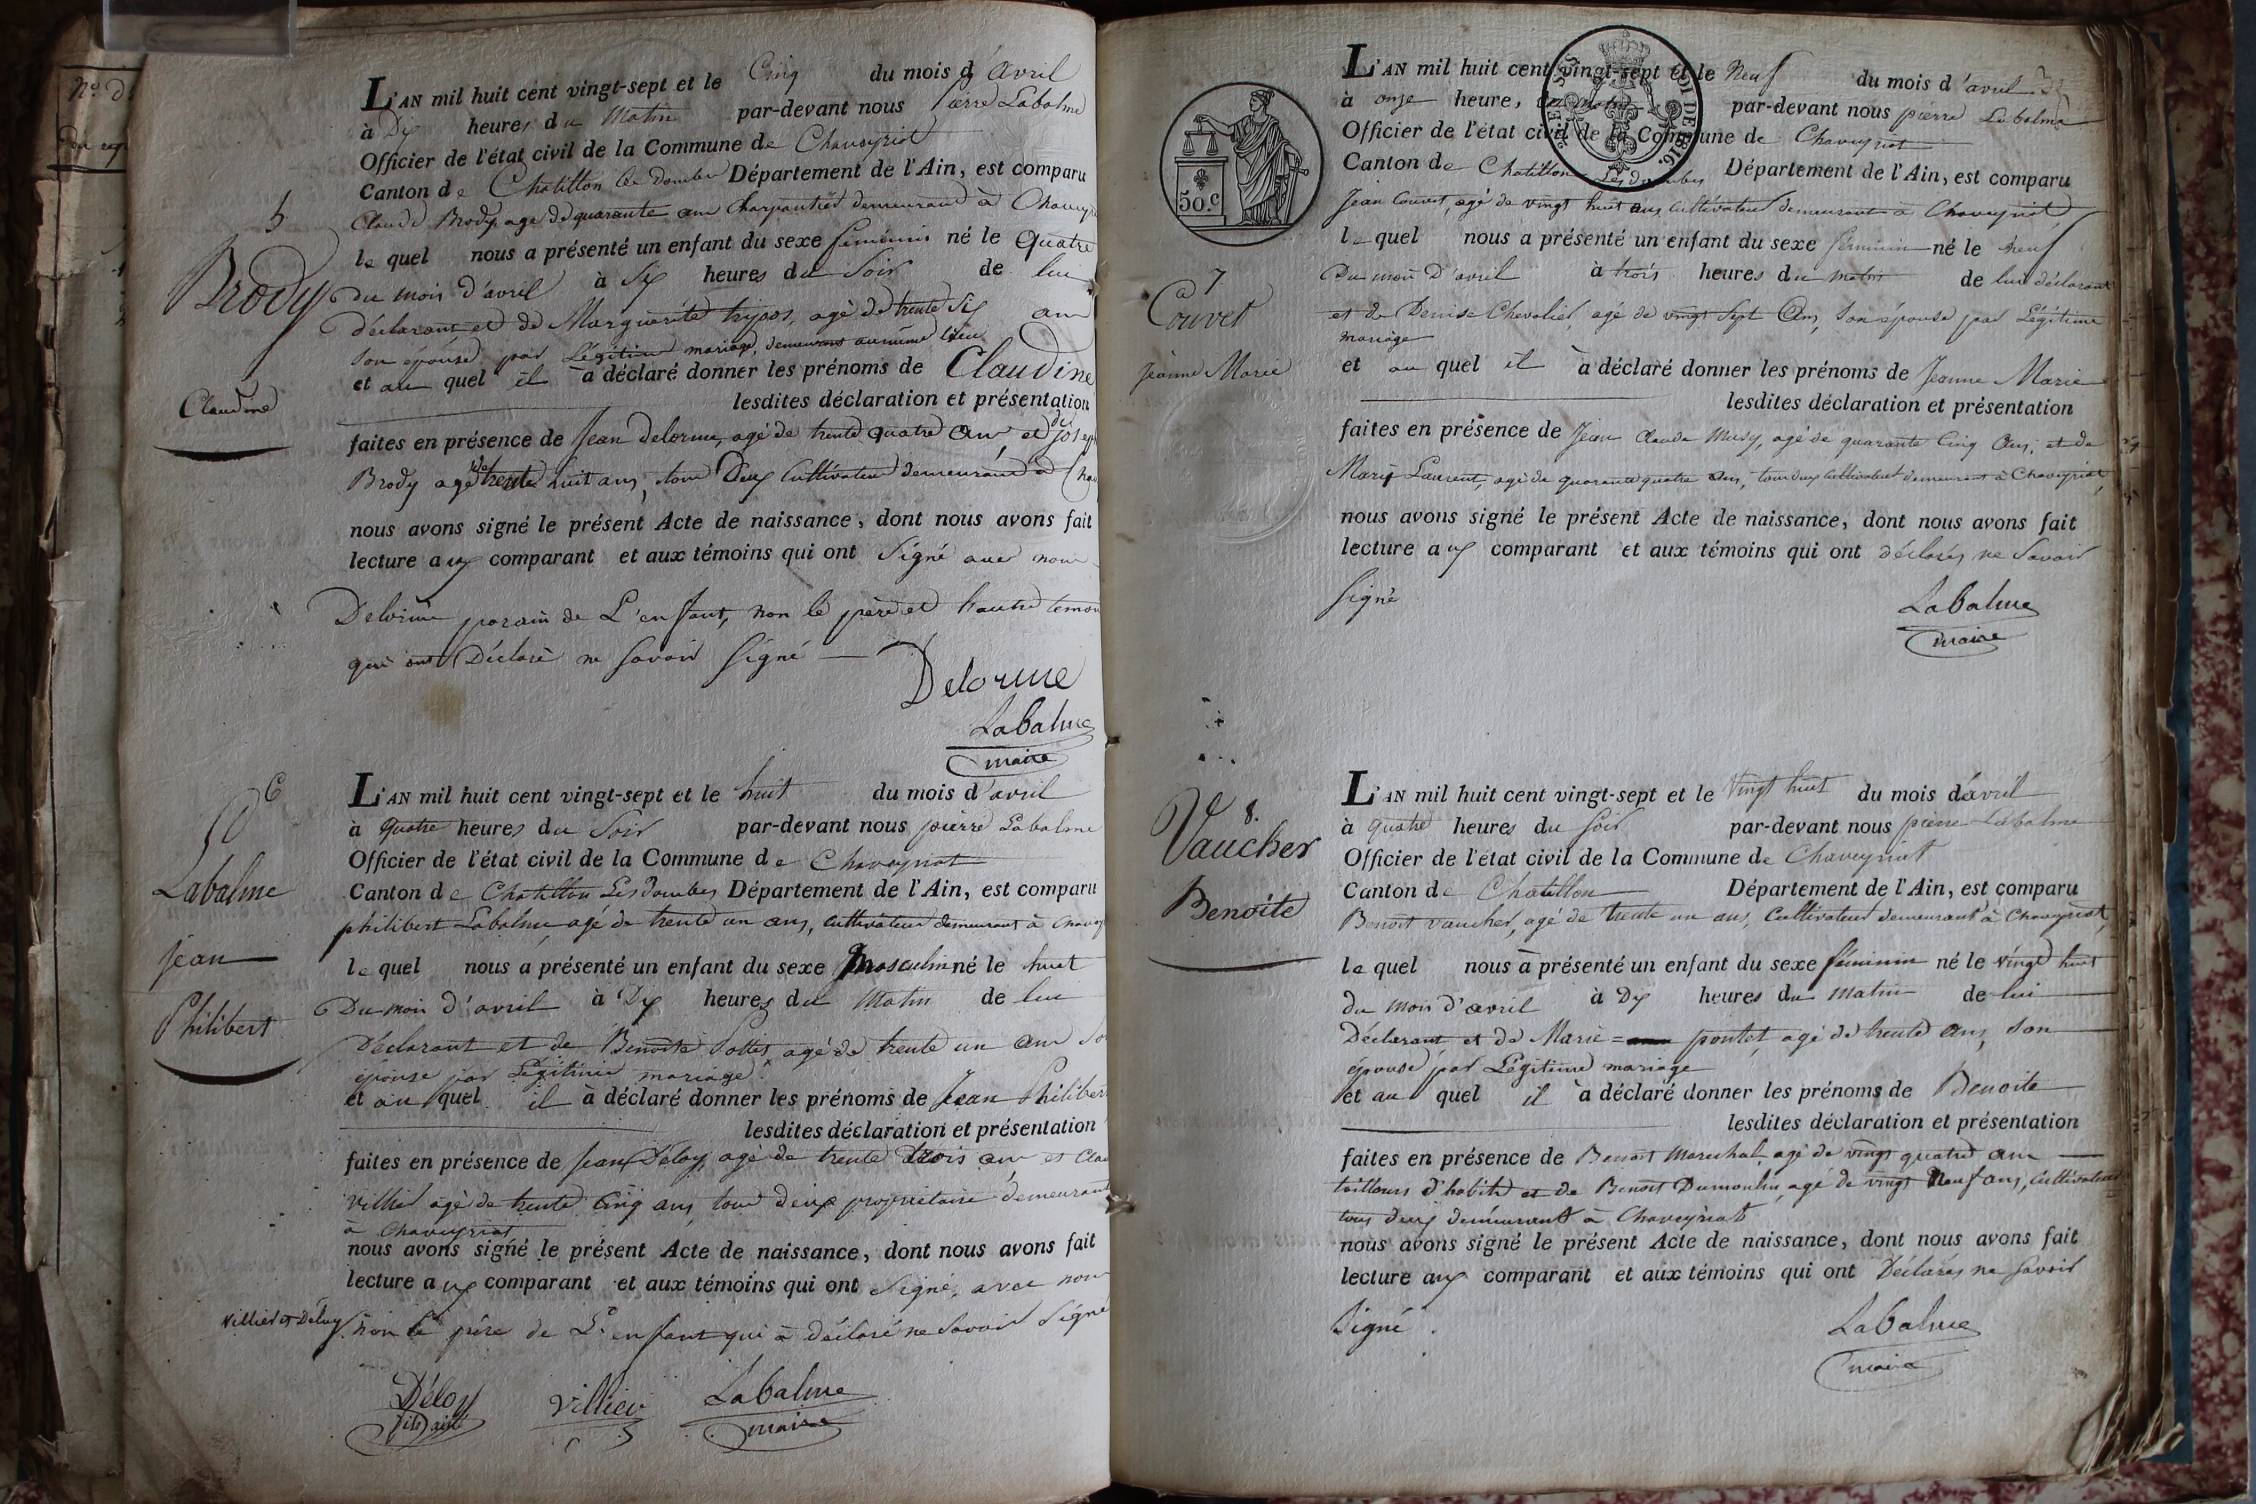 5
Brody
Claudine
L'AN mil huit cent vingt-sept et le Cinq du mois d'Avril
à Dix heures du Matin par-devant nous Pierre Labalme
Officier de l'état civil de la Commune de Chaveyriat
Canton de Chatillon les dombes Département de l'Ain, est comparu
Claude Brody, agé de quarante ans Charpantier demeurand à Chavey
le quel nous a présenté un enfant du sexe feminin né le Quatre
du mois d'avril à Six heures du Soir de lui
déclarant et de Marguérite, agé de trente Six ans
son épouse par Légitime mariage, demeurans au même lieu
et au quel il a déclaré donner les prénoms de Claudine
lesdites déclaration et présentation
faites en présence de Jean delorme, agé de trente quatre ans et de joseph
Brody agé de trente huit ans, tous Deux Cultivateur demeurand à Cha
nous avons signé le présent Acte de naissance, dont nous avons fait
lecture aux comparant et aux témoins qui ont Signé avec nous
Delorme parain de L'enfant, non le père et l'autre temoin
qui ont Déclaré ne savoir signé
Delorme
Labalme
maire
6
Labalme
Jean
Philibert
L'AN mil huit cent vingt-sept et le huit du mois d'avril
à Quatre heures du Soir par-devant nous pierre Labalme
Officier de l'état civil de la Commune de Chaveyriat
Canton de Chatillon Les dombes Département de l'Ain, est comparu
philibert Labalme, agé de trente un ans, cultivateur demeurant à Chavey
le quel nous a présenté un enfant du sexe Masculin né le huit
Du mois d'avril à Dix heures du Matin de lui
Déclarant et de Benoite, agé de trente un ans So
épouse par Légitime mariage
et au quel il à déclaré donner les prénoms de Jean Philibert
lesdites déclaration et présentation
faites en présence de Jean Déloy, agé de trente trois ans et Clau
Villier agé de trente Cinq ans, tous deux propriétaire demeurant
à Chaveyriat
nous avons signé le présent Acte de naissance, dont nous avons fait
lecture aux comparant et aux témoins qui ont Signé, avec nous
Villier et Déloy, non le père de L'enfant qui a déclaré ne Savoir Signé
Déloy Villier Labalme
fils ainé maire
L'AN mil huit cent vingt-sept et le Neuf du mois d'avril
à onze heure, du matin par-devant nous pierre Labalme
Officier de l'état civil de la Commune de Chaveyriat
Canton de Chatillon Les dombes Département de l'Ain, est comparu
50.C
Jean Couvet, agé de vingt huit ans, cultivateur demeurant à Chaveyriat
le quel nous a présenté un enfant du sexe féminin né le neuf
Du mois D'avril à trois heures du matin de lui déclarant
7
Couvet
Jeanne Marie
et de Denise Chevalier, agé de vingt Sept Ans, son épouse par Légitime
mariage
et au quel il à déclaré donner les prénoms de Jeanne Marie
lesdites déclaration et présentation
faites en présence de Jean Claude Musy, agé de quarante Cinq Ans, et de
Marie Laurent, agé de quarante quatre ans, tous deux Cultivateur demeurant à Chaveyriat,
nous avons signé le présent Acte de naissance, dont nous avons fait
lecture aux comparant et aux témoins qui ont déclarés ne Savoir
Signé
Labalme
maire
8.
Vaucher
Benoite
L'AN mil huit cent vingt-sept et le Vingt huit du mois d'avril
à quatre heures du Soir par-devant nous pierre Labalme
Officier de l'état civil de la Commune de Chaveyriat
Canton de Chatillon Département de l'Ain, est comparu
Benoit Vaucher, agé de trente un ans, Cultivateur demeurant à Chaveyriat,
le quel nous à présenté un enfant du sexe féminin né le vingt huit
du mois d'avril à Dix heures du matin de lui
Déclarant et de Marie pontet, agé de trente ans, son
épouse par Légitime mariage
et au quel il à déclaré donner les prénoms de Benoite
lesdites déclaration et présentation
faites en présence de Benoit Marechal, agé de vingt quatre ans
tailleurs d'habits et de Benoit Dumoulin, agé de vingt Neuf ans, Cultivateur
tous deux demeurant à Chaveyriat
nous avons signé le présent Acte de naissance, dont nous avons fait
lecture aux comparant et aux témoins qui ont Déclarés ne Savoir
Signé.
Labalme
maire